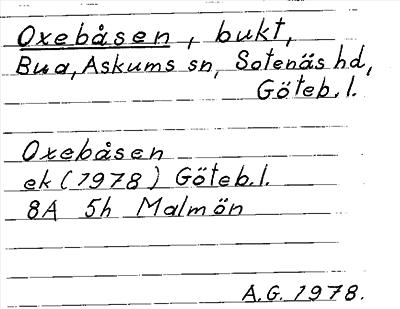 Oxebåsen, bukt,
Bua, Askums sn, Sotenäs hd,
Göteb.l.
Oxebåsen
ek (1978) Göteb.l.
8A 5h Malmön
A.G. 1978.